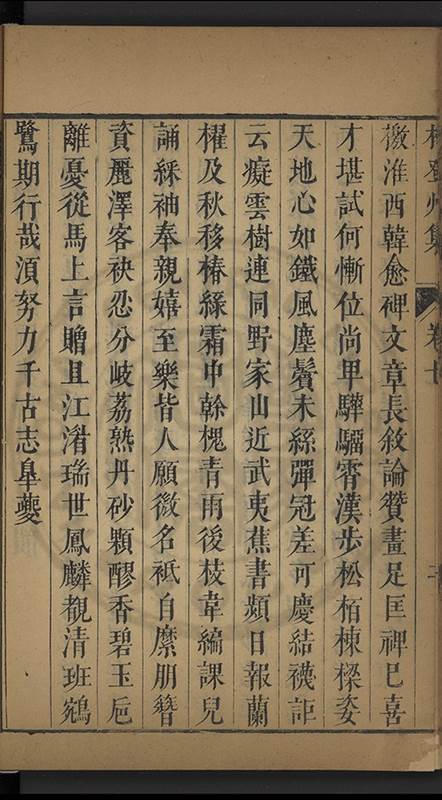 檄淮西韓愈碑文章長敘論贊畫足匡裨巳喜
才堪試何慚位尚卑驊騮霄漢步松栢棟樑姿
天地心如鐵風塵鬢未絲彈冠差可慶結襪詎
云癡雲樹連同野家山近武夷蕉書頻日報蘭
櫂及秋移椿綠霜中榦槐青雨後枝韋編課兒
誦綵袖奉親嬉至樂皆人願微名祗自縻朋簪
資麗澤客袂忍分岐荔熟丹砂顆醪香碧玉巵
離憂從馬上言贈且江湄瑞世鳳麟覩清班鵷
鷺期行哉須努力千古志皐夔